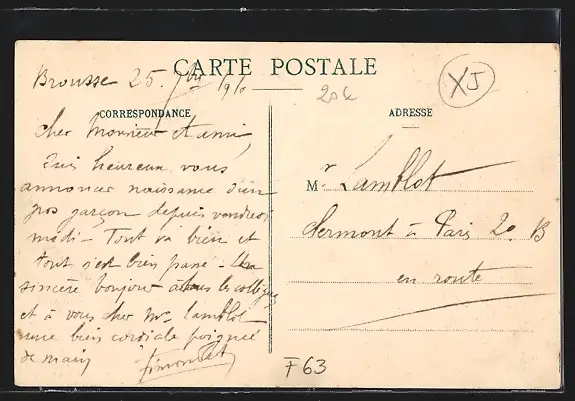 CARTE POSTALE
Brousse 25 7bre 1910
20k
XJ
CORRESPONDANCE
ADRESSE
Cher Monsieur et ami,
Suis heureux vous
annoncer naissance d'un
gros garçon depuis vendredi
midi - Tout va bien et
tout s'est bien passé - Un
sincère bonjour à tous les collègues
et à vous cher Mr Lamblot
une bien cordiale poignée
de main
Mr Lamblot
Clermont à Paris 2o B
en route
F63